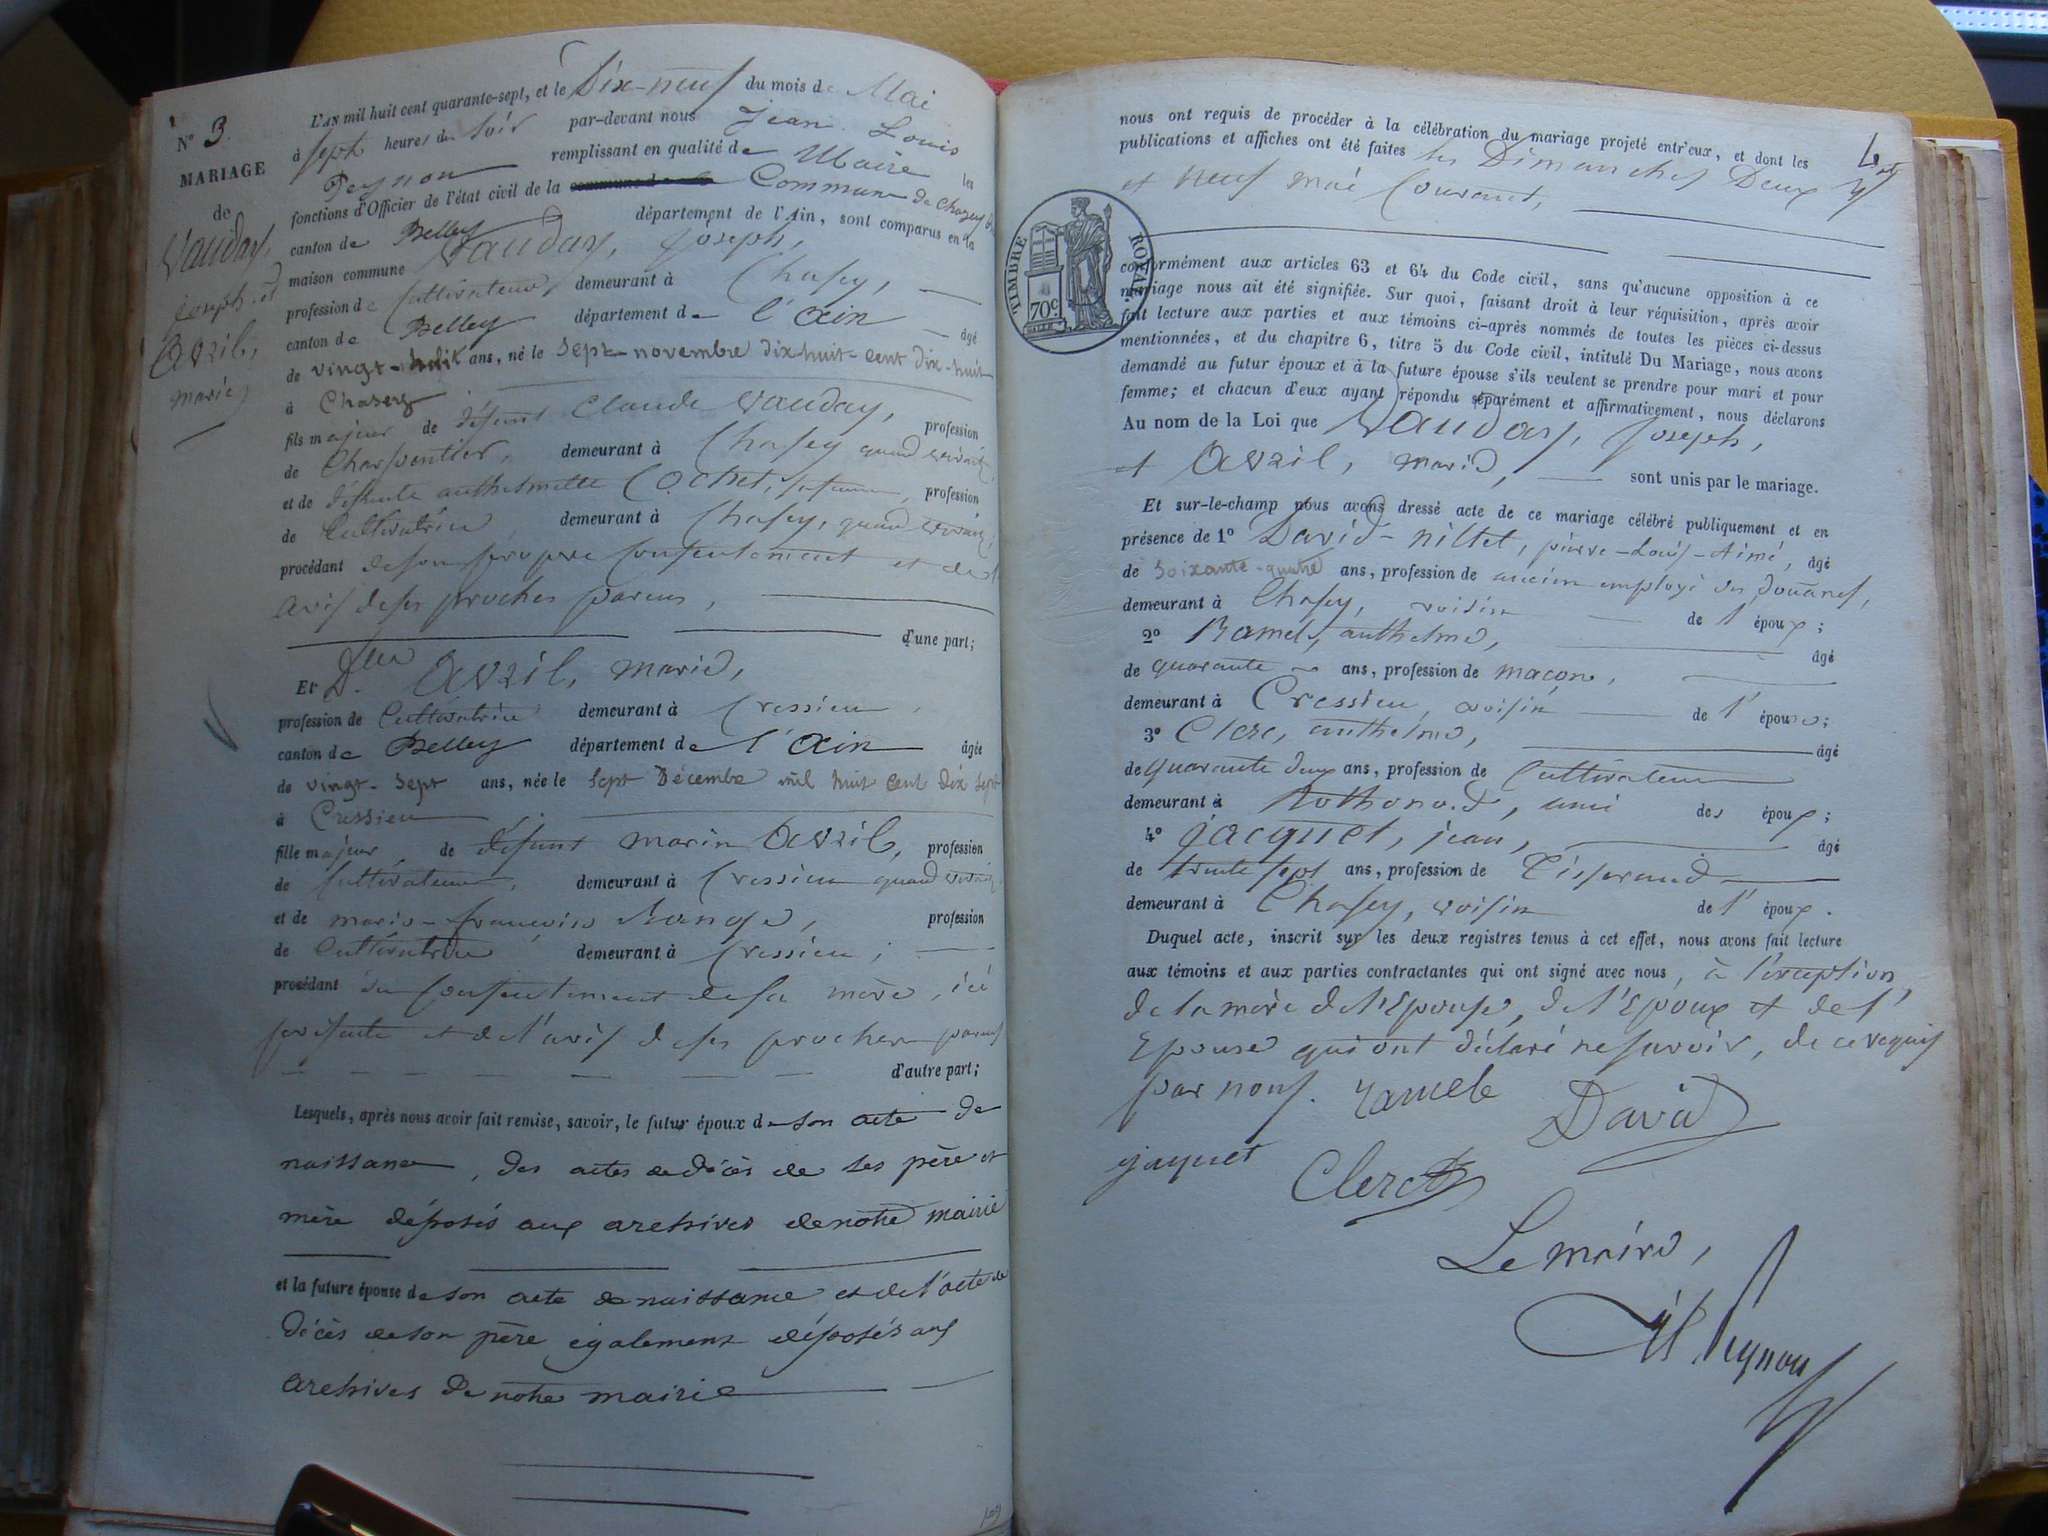 N° 3.
MARIAGE
de
Vauday,
joseph et
Avril,
marie
L'AN mil huit cent quarante-sept, et le Dix-neuf du mois de Mai
à sept heures du soir par-devant nous Jean Louis
Peynon remplissant en qualité de Maire les
fonctions d'Officier de l'état civil de la Commune de Chazey
canton de Belley département de l'Ain, sont comparus en la
maison commune Vauday, joseph,
profession de Cultivateur demeurant à Chasey,
canton de Belley département de l'ain âgé
de vingt-huit ans, né le sept novembre dix huit cent dix-huit
à Chasey
fils majeur de défunt Claude Vauday, profession
de Charpentier, demeurant à Chasey quand vivait
et de défunte anthelmette Cochet, sa femme, profession
de Cultivatrice demeurant à Chasey, quand vivait,
procédant de son propre consentement et de l'
avis de ses proches parens,
d'une part;
Et Dlle Avril, marie,
profession de Cultivatrice demeurant à Cressieu,
canton de Belley département de l'ain âgée
de vingt-sept ans, née le sept Décembre mil huit cent dix sept
à Cressieu
fille majeur de défunt marin Avril, profession
de Cultivateur, demeurant à Cressieu quand vivait
et de marie-françoise profession
de Cultivatrice demeurant à Cressieu,
procédant du consentement de sa mère, ici
présente et de l'avis de ses proches parens
d'autre part;
Lesquels, après nous avoir fait remise, savoir, le futur époux de son acte de
naissance, des actes de décès de ses père et
mère déposés aux archives de notre mairie
et la future épouse de son acte de naissance et de l'acte de
décès de son père également déposés aux
archives de notre mairie
nous ont requis de procéder à la célébration du mariage projeté entr'eux, et dont les
publications et affiches ont été faites les Dimanches Deux
et neuf mai Courant,
TIMBRE ROYAL
70c
conformément aux articles 63 et 64 du Code civil, sans qu'aucune opposition à ce
mariage nous ait été signifiée. Sur quoi, faisant droit à leur réquisition, après avoir
fait lecture aux parties et aux témoins ci-après nommés de toutes les pièces ci-dessus
mentionnées, et du chapitre 6, titre 5 du Code civil, intitulé Du Mariage, nous avons
demandé au futur époux et à la future épouse s'ils veulent se prendre pour mari et pour
femme; et chacun d'eux ayant répondu séparément et affirmativement, nous déclarons
Au nom de la Loi que Vauday, joseph,
et Avril, marie, sont unis par le mariage.
Et sur-le-champ nous avons dressé acte de ce mariage célébré publiquement et en
présence de 1° David-nillet, pierre-Louis-Aimé, âgé
de soixante-quatre ans, profession de ancien employé des Douanes,
demeurant à Chasey, voisin de l'époux;
2° Ramel, anthelme, âgé
de quarante ans, profession de macon,
demeurant à Cressieu, voisin de l'épouse;
3° Clerc, anthelme, âgé
de quarante deux ans, profession de Cultivateur
demeurant à Rothonod, ami des époux;
4° jacquet, jean, âgé
de trente sept ans, profession de Tisserand
demeurant à Chasey, voisin de l'époux.
Duquel acte, inscrit sur les deux registres tenus à cet effet, nous avons fait lecture
aux témoins et aux parties contractantes qui ont signé avec nous, à l'exception
de la mère de l'Epouse, de l'Epoux et de l'
Epouse qui ont déclaré ne savoir, de ce requis
par nous. ramel David
jaquet Clerc
Le maire,
Peynon